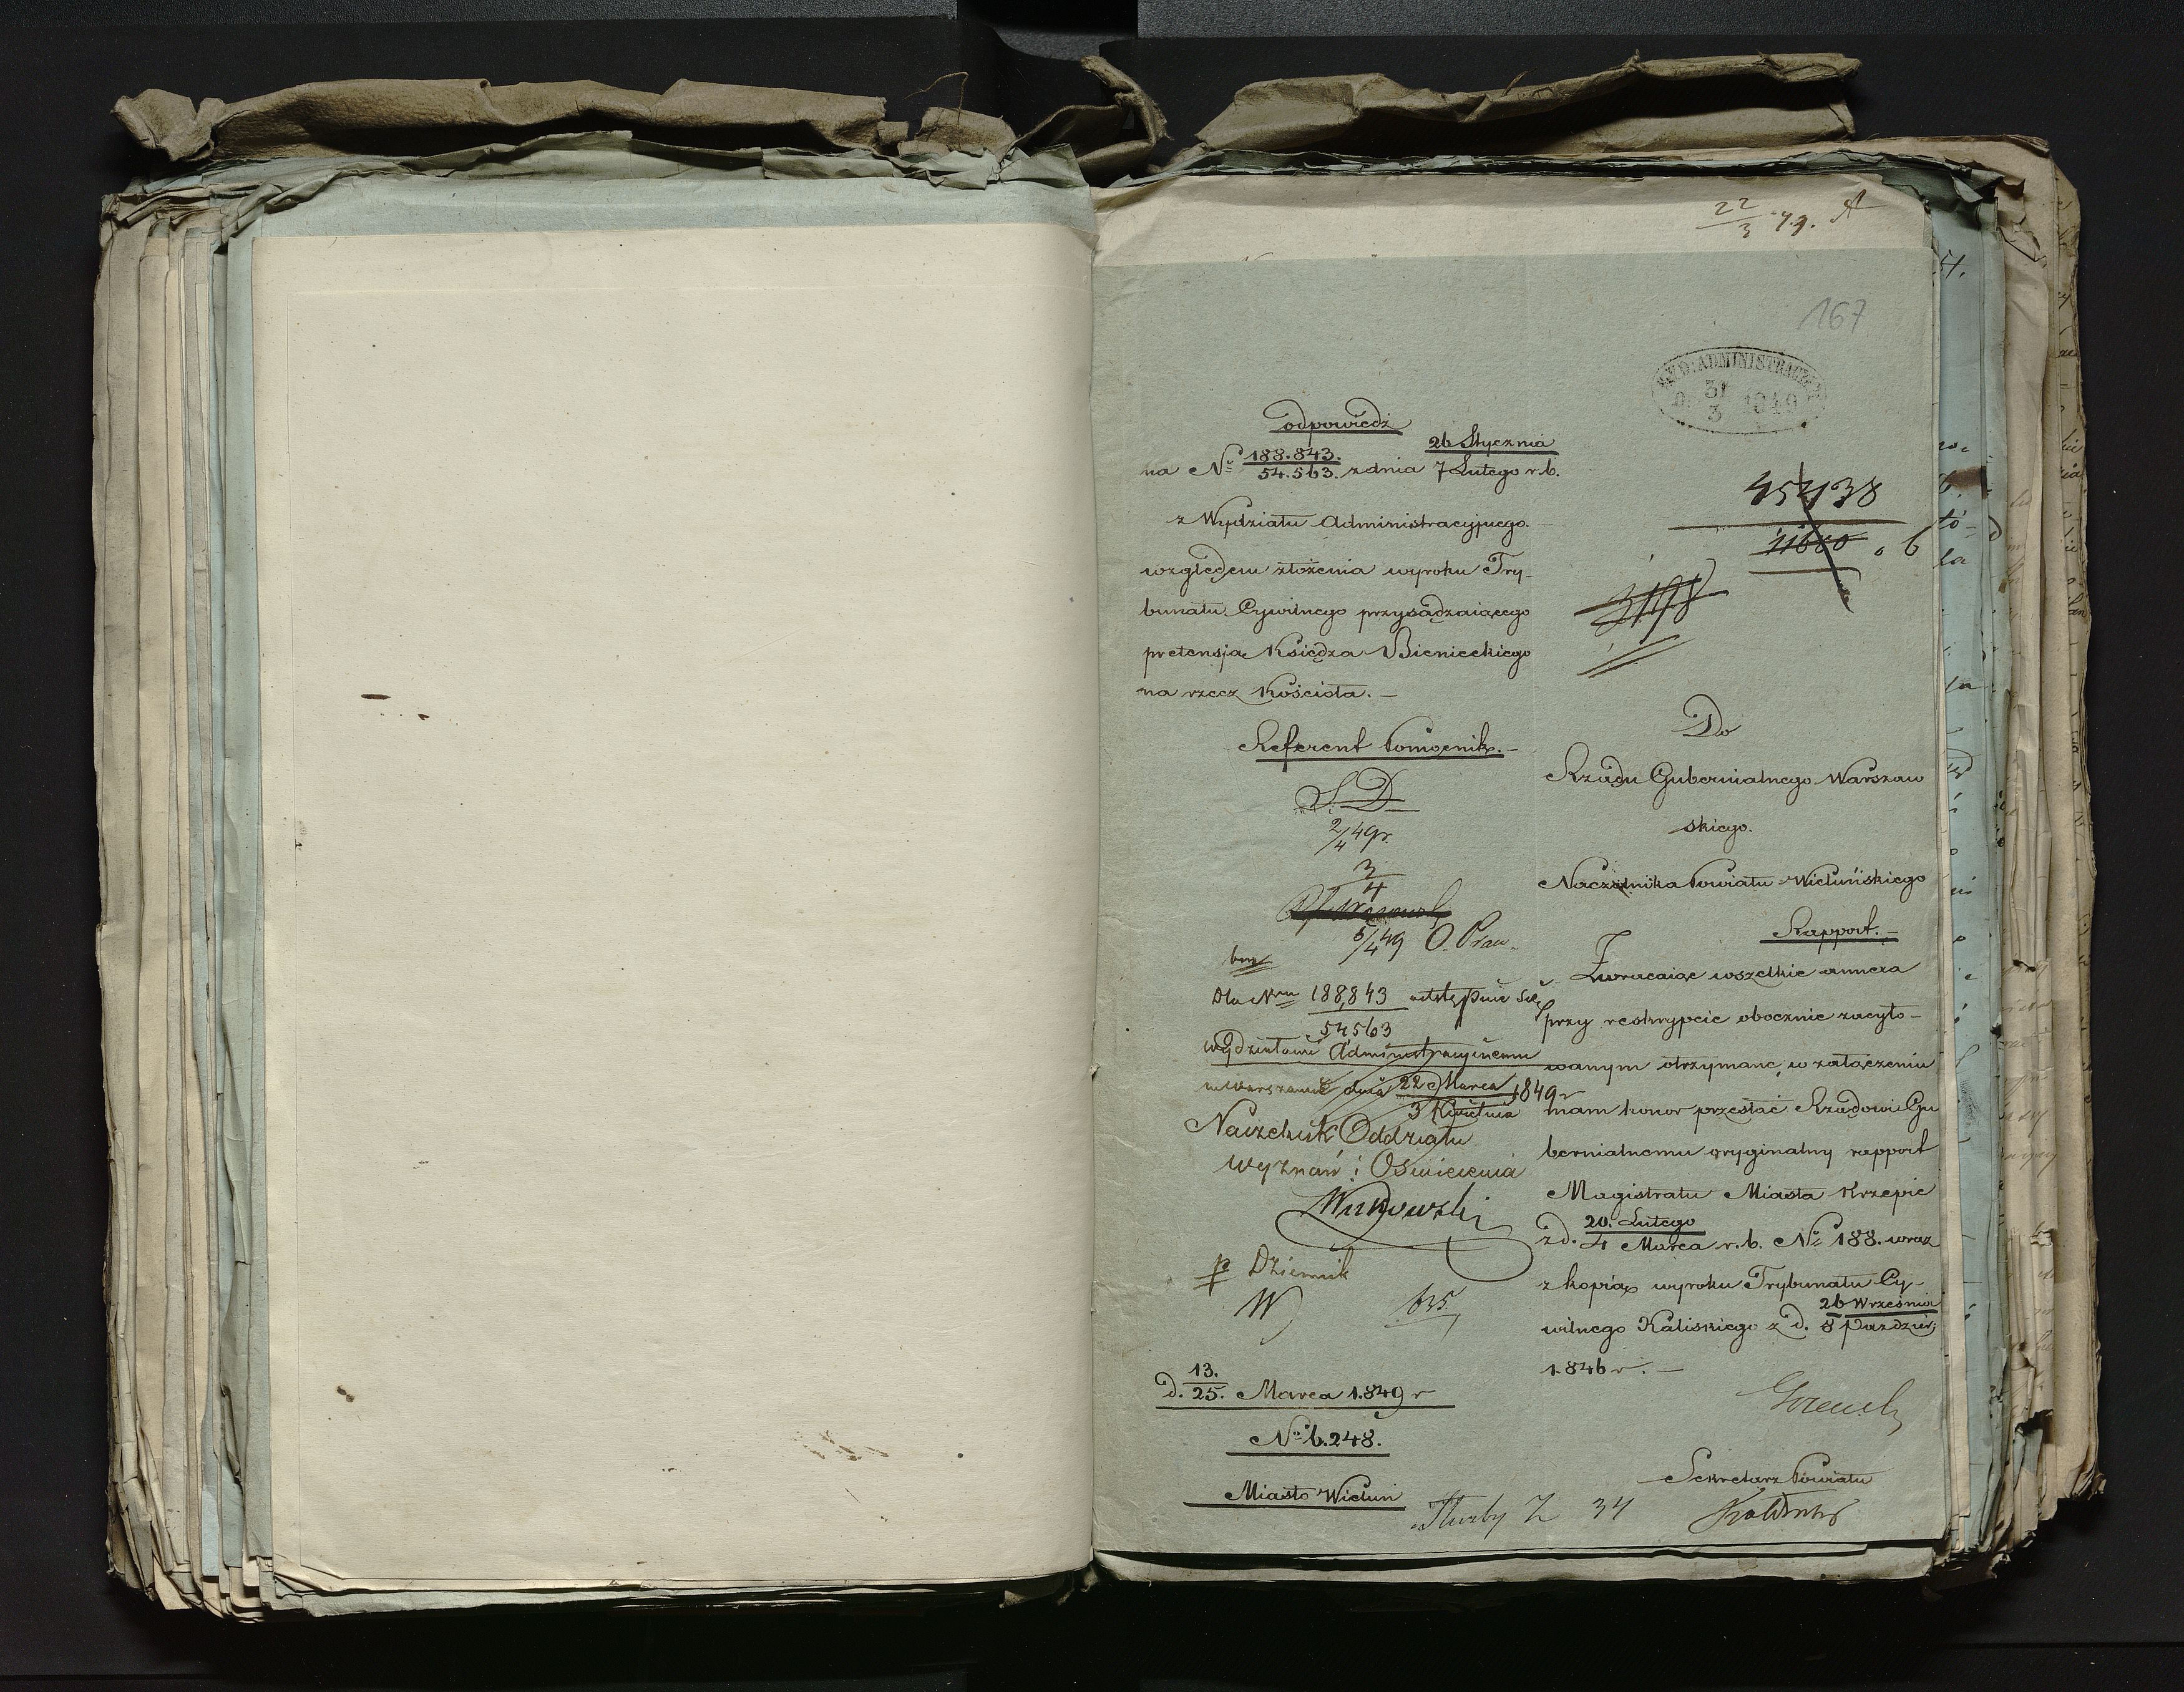 22/3 49.
167
WYD: ADMINISTRACYJNY
D. 31/3 1849
odpowiedź
na No 188.843./54.563. z dnia 26 Stycznia/7 Lutego r.b.
z Wydziału Administracyjnego.
względem złożenia wyroku Try-
bunału Cywilnego przysądzaiącego
pretensją Księdza Bienieckiego
na rzecz Kościoła. —
Referent Pomocnik. —
S. D
2/4 49 r.
3/4
5/4 49 O. Praw.
Dla Nru 188,843/54,563 odstępuie się
wydziałowi Administracyinemu
w Warszawie dnia 22 Marca/3 Kwietnia 1849 r
Naczelnik Oddziału
Wyznań i Oświecenia
p Dziennik
W 635.
d. 13./25. Marca 1.849 r
No 6.248.
Miasto Wieluń
45438
11680 . 6
3198
Do
Rządu Gubernialnego Warszaw
skiego.
Naczelnika Powiatu Wieluńskiego
Rapport. —
Zwracaiąc wszelkie annexa
przy reskrypcie obocznie zacyto-
wanym otrzymane, w załączeniu
mam honor przesłać Rządowi Gu
bernialnemu oryginalny rapport
Magistratu Miasta Krzepic
z d. 20. Lutego/4 Marca r. b. No 188. wraz
z kopią wyroku Trybunału Cy-
wilnego Kaliskiego z d. 26 Września/8 Paździer:
1.846 r. —
Sekretarz Powiatu
Służby Z 34